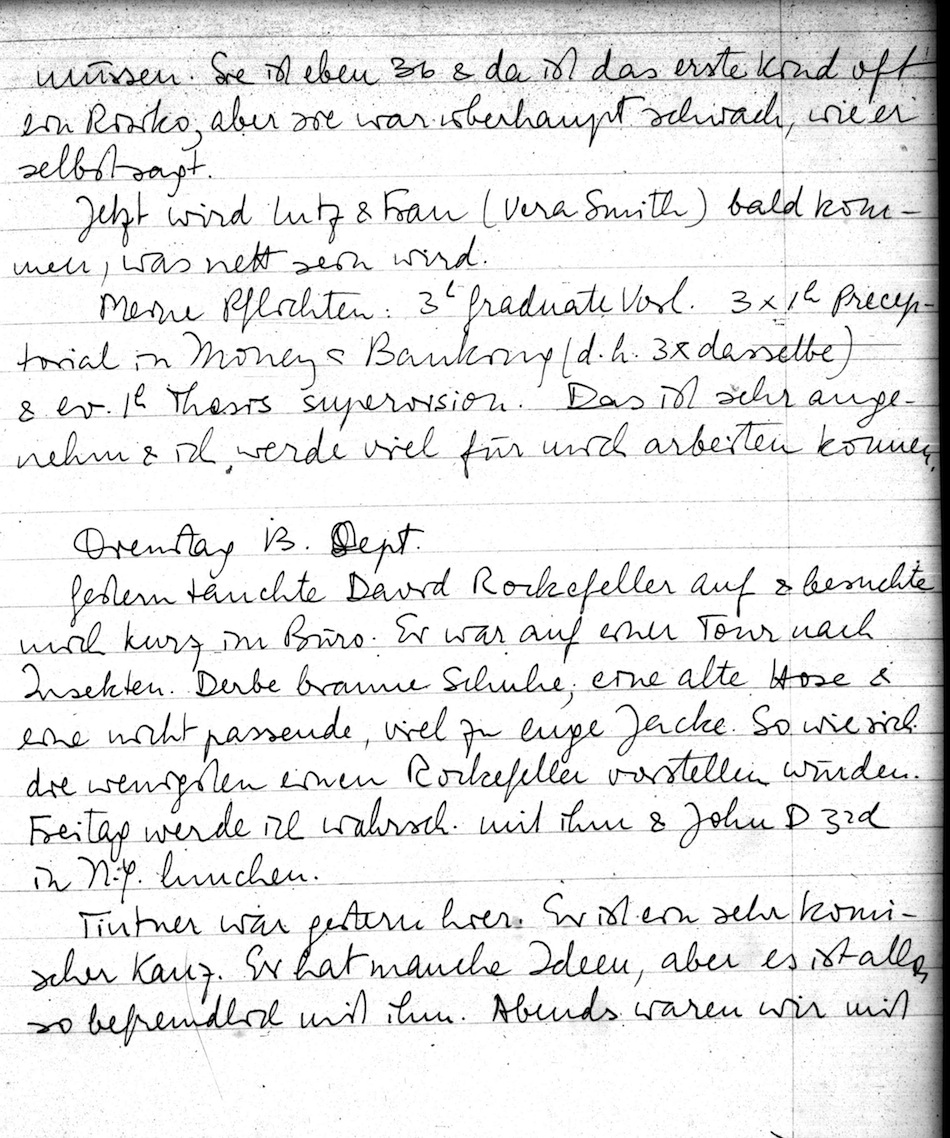 müssen. Sie ist eben 36 & da ist das erste Kind oft
ein Risiko, aber sie war überhaupt schwach, wie er
selbst sagt.
Jetzt wird Lutz & Frau (Vera Smith) bald kom-
men, was nett sein wird.
Meine Pflichten: 3h graduate Vorl. 3 x 1h Precep-
torial in Money & Banking (d.h. 3x dasselbe)
& ev. 1h Thesis supervision. Das ist sehr ange-
nehm & ich werde viel für mich arbeiten können.
Dienstag 13. Sept.
Gestern tauchte David Rockefeller auf & besuchte
mich kurz im Büro. Er war auf einer Tour nach
Insekten. Derbe braune Schuhe, eine alte Hose &
eine nicht passende, viel zu enge Jacke. So wie sich
die wenigsten einen Rockefeller vorstellen würden.
Freitag werde ich wahrsch. mit ihm & John D 3rd
in N.Y. lunchen.
Tintner war gestern hier. Er ist ein sehr komi-
scher Kauz. Er hat manche Ideen, aber es ist alles
so befremdlich mit ihm. Abends waren wir mit